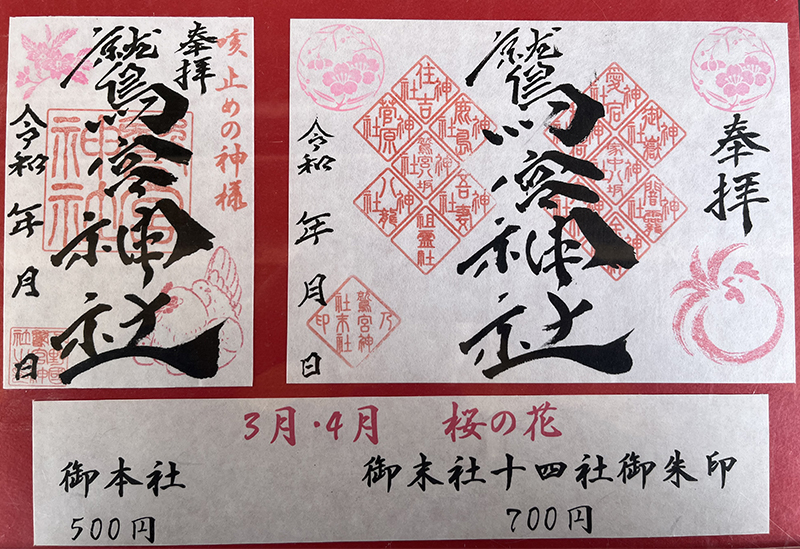 咳止めの神様
奉拝
鷲宮神社
令和 年 月 日
奉拝
鷲宮神社
令和 年 月 日
住吉神社
鹿島神社
菅原神社
鷲宮八坂
吾妻神社
八龍神社
祖霊社
愛宕神社
御嶽神社
家中八坂
闇龗神社
鷲宮神
社末社
乃印
3月・4月 桜の花
御本社
500円
御末社十四社御朱印
700円